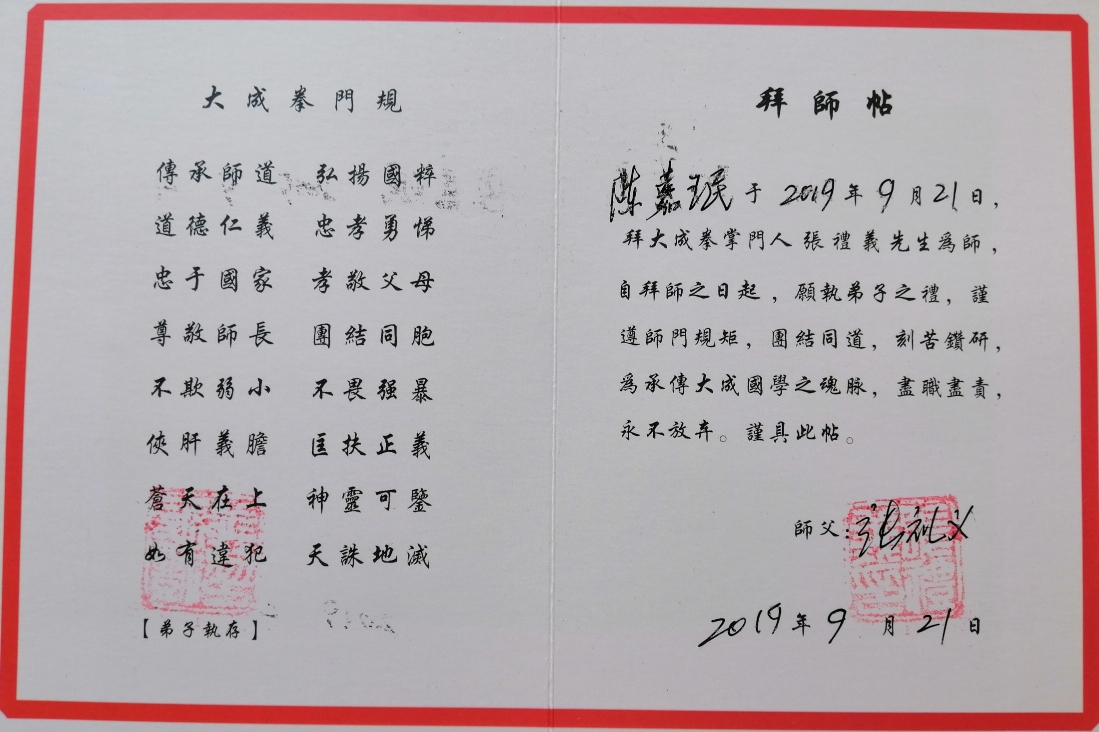 大成拳門規
傳承師道 弘揚國粹
道德仁義 忠孝勇悌
忠于國家 孝敬父母
尊敬師長 團結同胞
不欺弱小 不畏强暴
俠肝義膽 匡扶正義
蒼天在上 神靈可鑒
如有違犯 天誅地滅
【弟子執存】
拜師帖
陳嘉珉于2019年9月21日，
拜大成拳掌門人張禮義先生爲師，
自拜師之日起，願執弟子之禮，謹
遵師門規矩，團結同道，刻苦鑽研，
爲承傳大成國學之魂脉，盡職盡責，
永不放弃。謹具此帖。
師父：张礼义
2019年9月21日